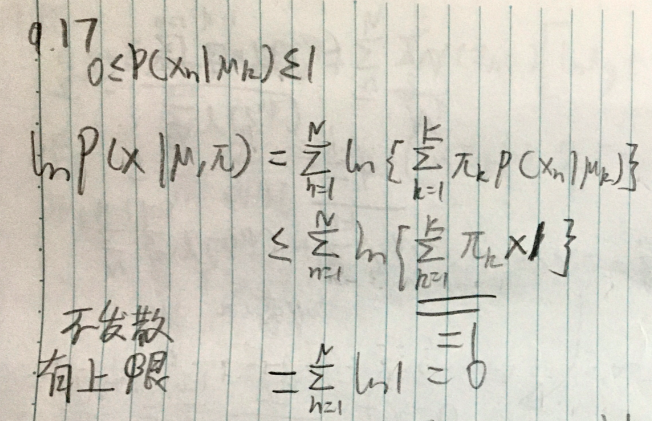 9.17
0≤P(xₙ|μₖ)≤1
ln P(x|μ,π) = Σₙ₌₁ᴺ ln{Σₖ₌₁ᴷ πₖ p(xₙ|μₖ)}
≤ Σₙ₌₁ᴺ ln{Σₖ₌₁ᴷ πₖ×1}
=1
不发散
有上限
= Σₙ₌₁ᴺ ln1 = 0